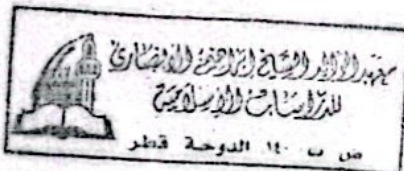 معهد الوالد الشيخ إبراهيم الأنصاري
للدراسات الإسلامية
ص ب ١٤٠ الدوحة قطر